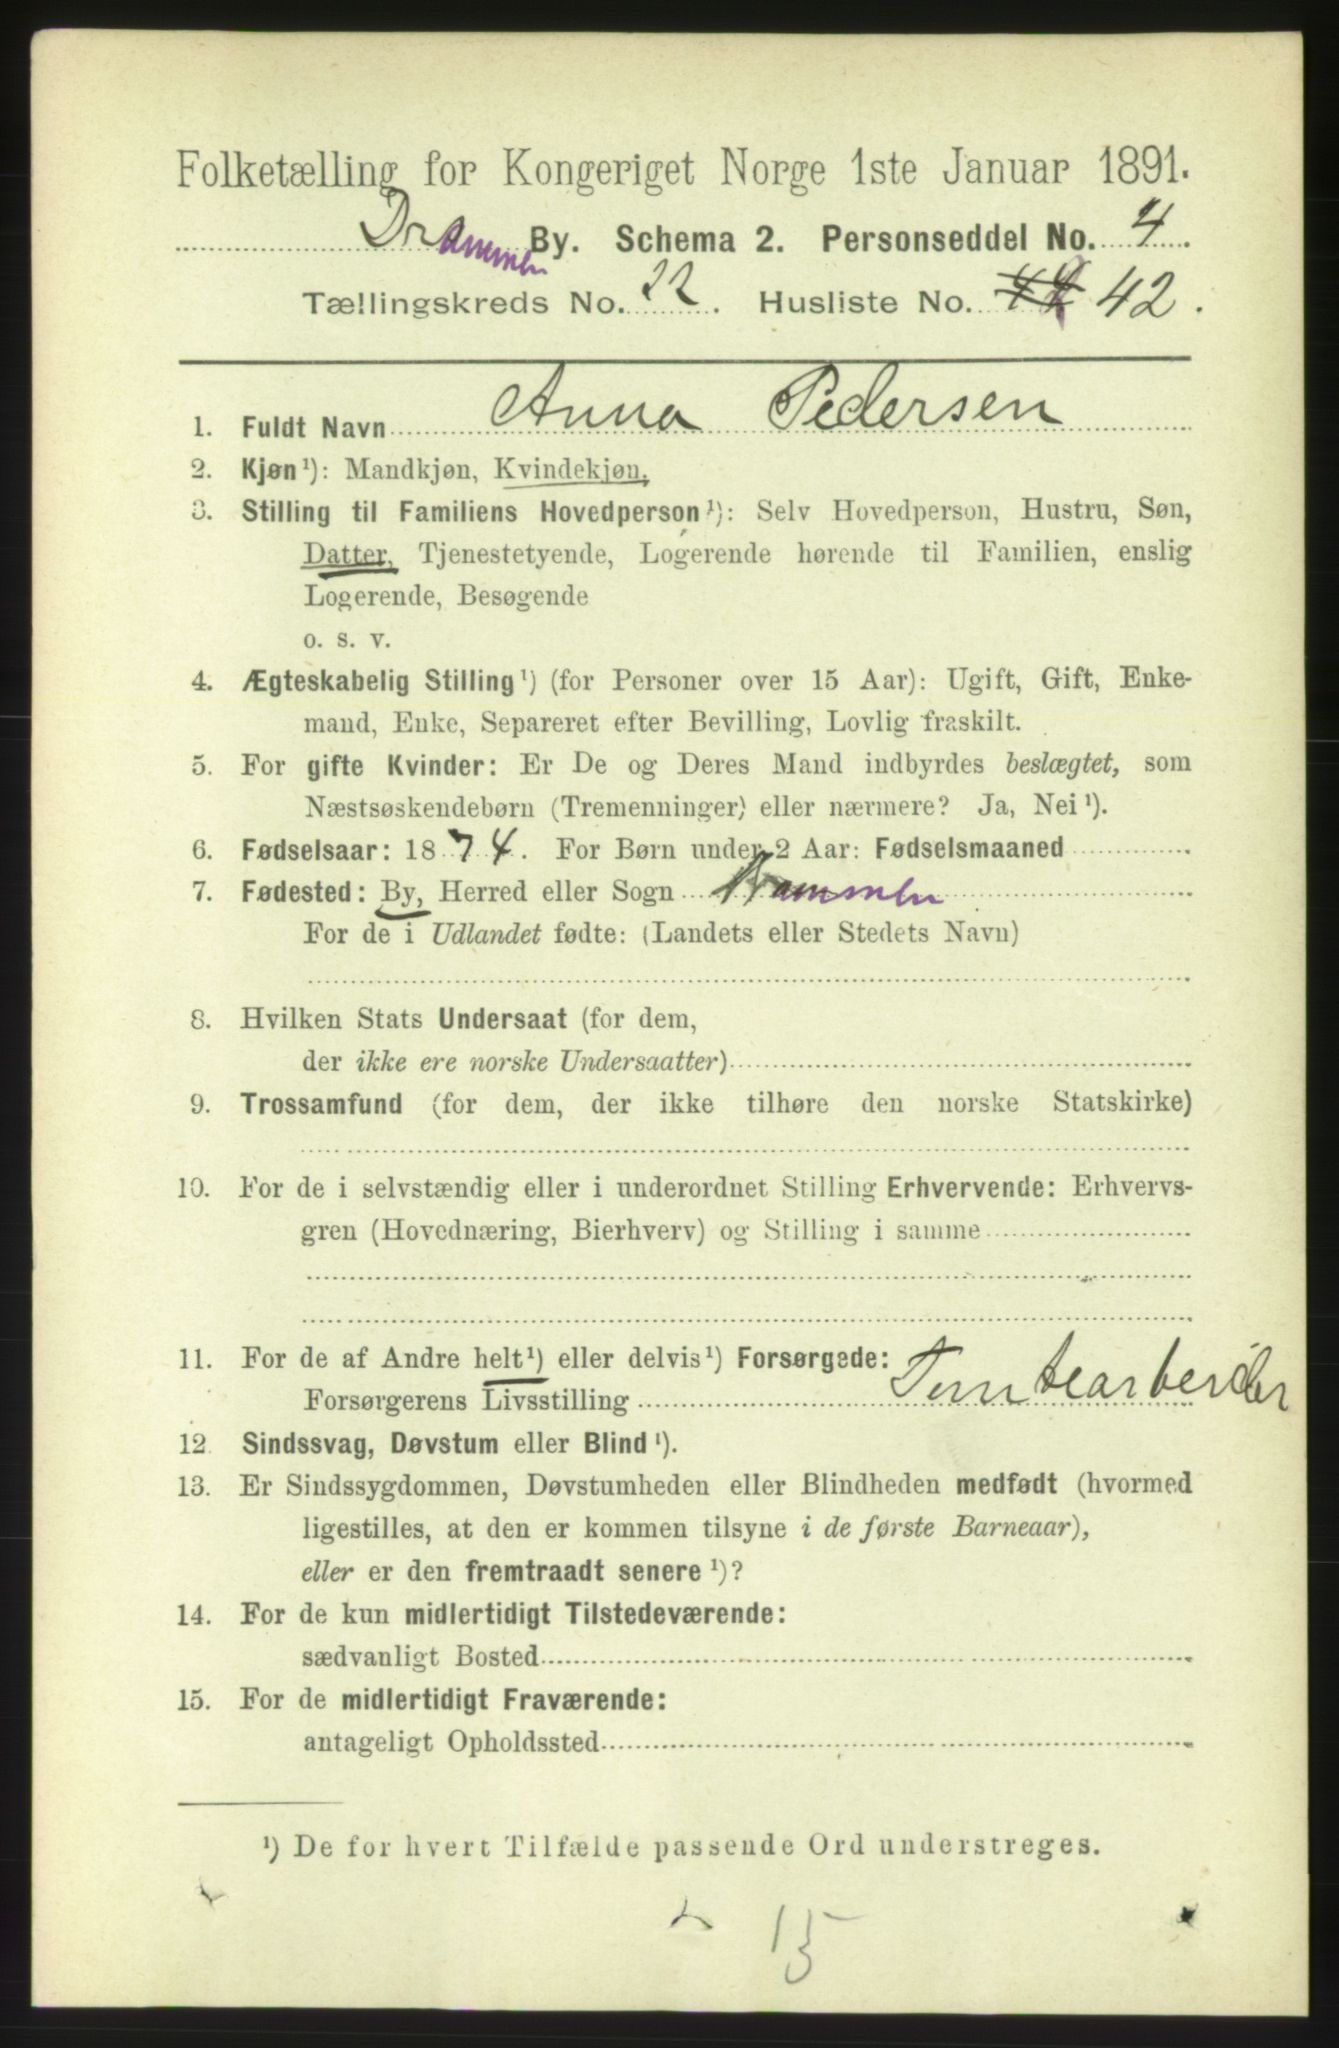 Folketælling for Kongeriget Norge 1ste Januar 1891.
Drammen By. Schema 2. Personseddel No. 4.
Tællingskreds No. 22. Husliste No. 42.
1. Fuldt Navn Anna Pedersen
2. Kjøn ¹): Mandkjøn, Kvindekjøn,
3. Stilling til Familiens Hovedperson ¹): Selv Hovedperson, Hustru, Søn,
Datter, Tjenestetyende, Logerende hørende til Familien, enslig
Logerende, Besøgende
o. s. v.
4. Ægteskabelig Stilling ¹) (for Personer over 15 Aar): Ugift, Gift, Enke-
mand, Enke, Separeret efter Bevilling, Lovlig fraskilt.
5. For gifte Kvinder: Er De og Deres Mand indbyrdes beslægtet, som
Næstsøskendebørn (Tremenninger) eller nærmere? Ja, Nei ¹).
6. Fødselsaar: 1874. For Børn under 2 Aar: Fødselsmaaned
7. Fødested: By, Herred eller Sogn Drammen
For de i Udlandet fødte: (Landets eller Stedets Navn)
8. Hvilken Stats Undersaat (for dem,
der ikke ere norske Undersaatter)
9. Trossamfund (for dem, der ikke tilhøre den norske Statskirke)
10. For de i selvstændig eller i underordnet Stilling Erhvervende: Erhvervs-
gren (Hovednæring, Bierhverv) og Stilling i samme
11. For de af Andre helt ¹) eller delvis ¹) Forsørgede:
Forsørgerens Livsstilling Tomtearbeider
12. Sindssvag, Døvstum eller Blind ¹).
13. Er Sindssygdommen, Døvstumheden eller Blindheden medfødt (hvormed
ligestilles, at den er kommen tilsyne i de første Barneaar),
eller er den fremtraadt senere ¹)?
14. For de kun midlertidigt Tilstedeværende:
sædvanligt Bosted
15. For de midlertidigt Fraværende:
antageligt Opholdssted
¹) De for hvert Tilfælde passende Ord understreges.
15